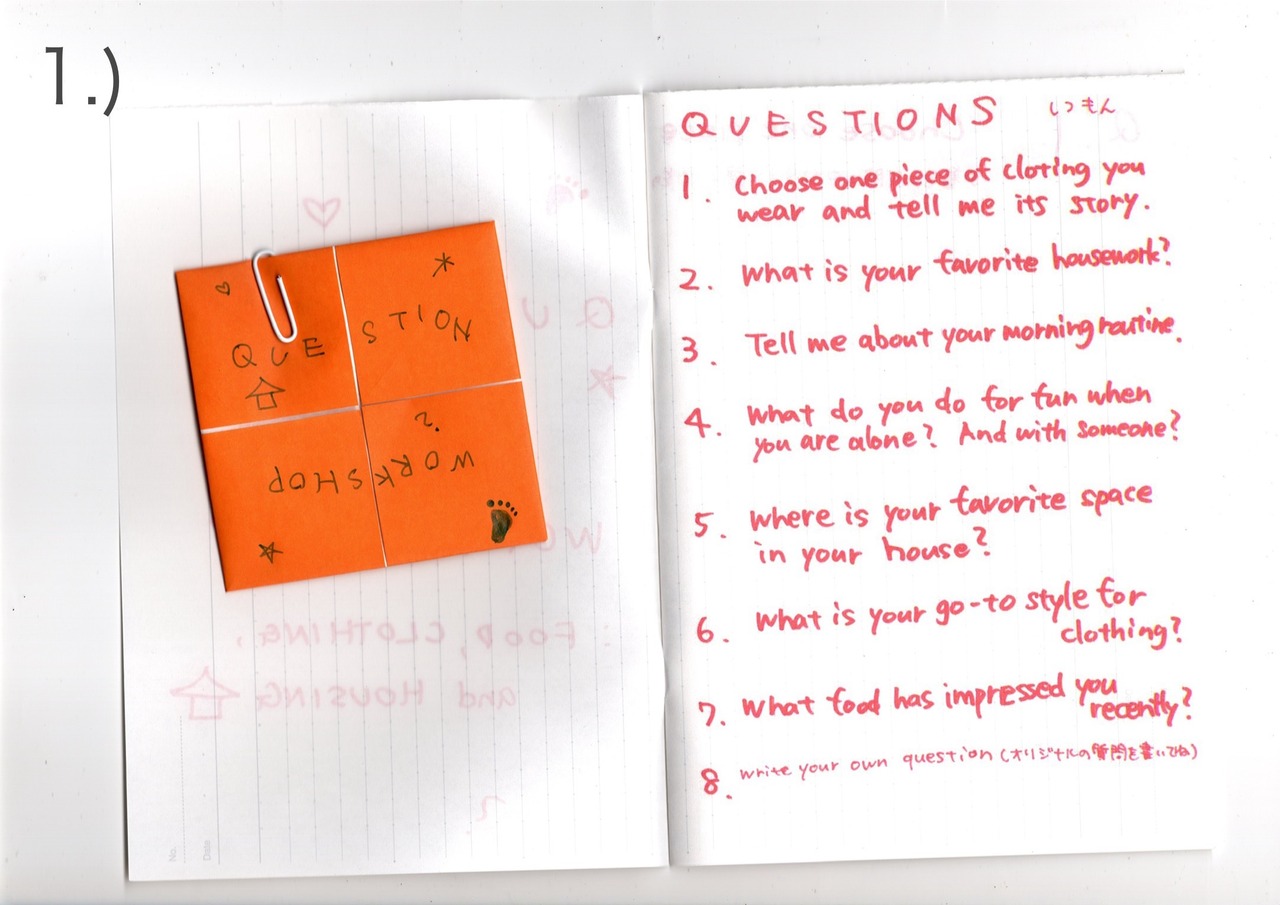 1.)
QUESTION
?
WORKSHOP
FOOD, CLOTHING,
and HOUSING
No.
Date
QUESTIONS しつもん
1. Choose one piece of cloting you
wear and tell me its story.
2. What is your favorite housework?
3. Tell me about your morning routine.
4. What do you do for fun when
you are alone? And with someone?
5. Where is your favorite space
in your house?
6. What is your go-to style for
clothing?
7. What food has impressed you
recently?
8. write your own question (オリジナルの質問を書いてね)